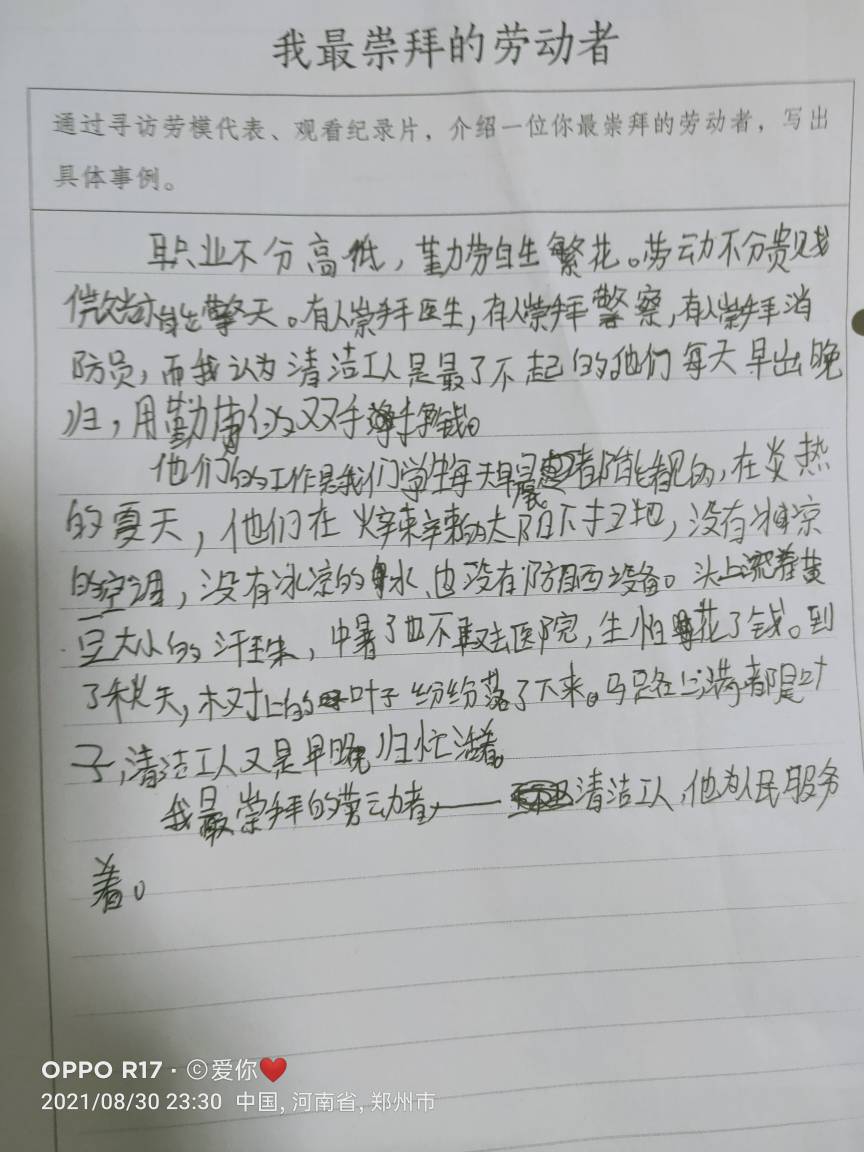 我最崇拜的劳动者
通过寻访劳模代表、观看纪录片，介绍一位你最崇拜的劳动者，写出
具体事例。
职业不分高低，勤劳自生繁花。劳动不分贵贱
自生擎天。有人崇拜医生，有人崇拜警察，有人崇拜消
防员，而我认为清洁工人是最了不起的他们每天早出晚
归，用勤劳的双手挣钱。
他们的工作是我们学生每天早晨都能看见的，在炎热
的夏天，他们在火辣辣的太阳下扫地，没有冰凉
的空调，没有冰凉的水，也没有防晒设备。头上流着黄
豆大小的汗珠，中暑了也不敢去医院，生怕花了钱。到
了秋天，树上的叶子纷纷落了下来。马路上满都是叶
子，清洁工人又是早晚归忙活着。
我最崇拜的劳动者——清洁工人，他为人民服务
着。
OPPO R17 · ©爱你❤
2021/08/30 23:30 中国, 河南省, 郑州市